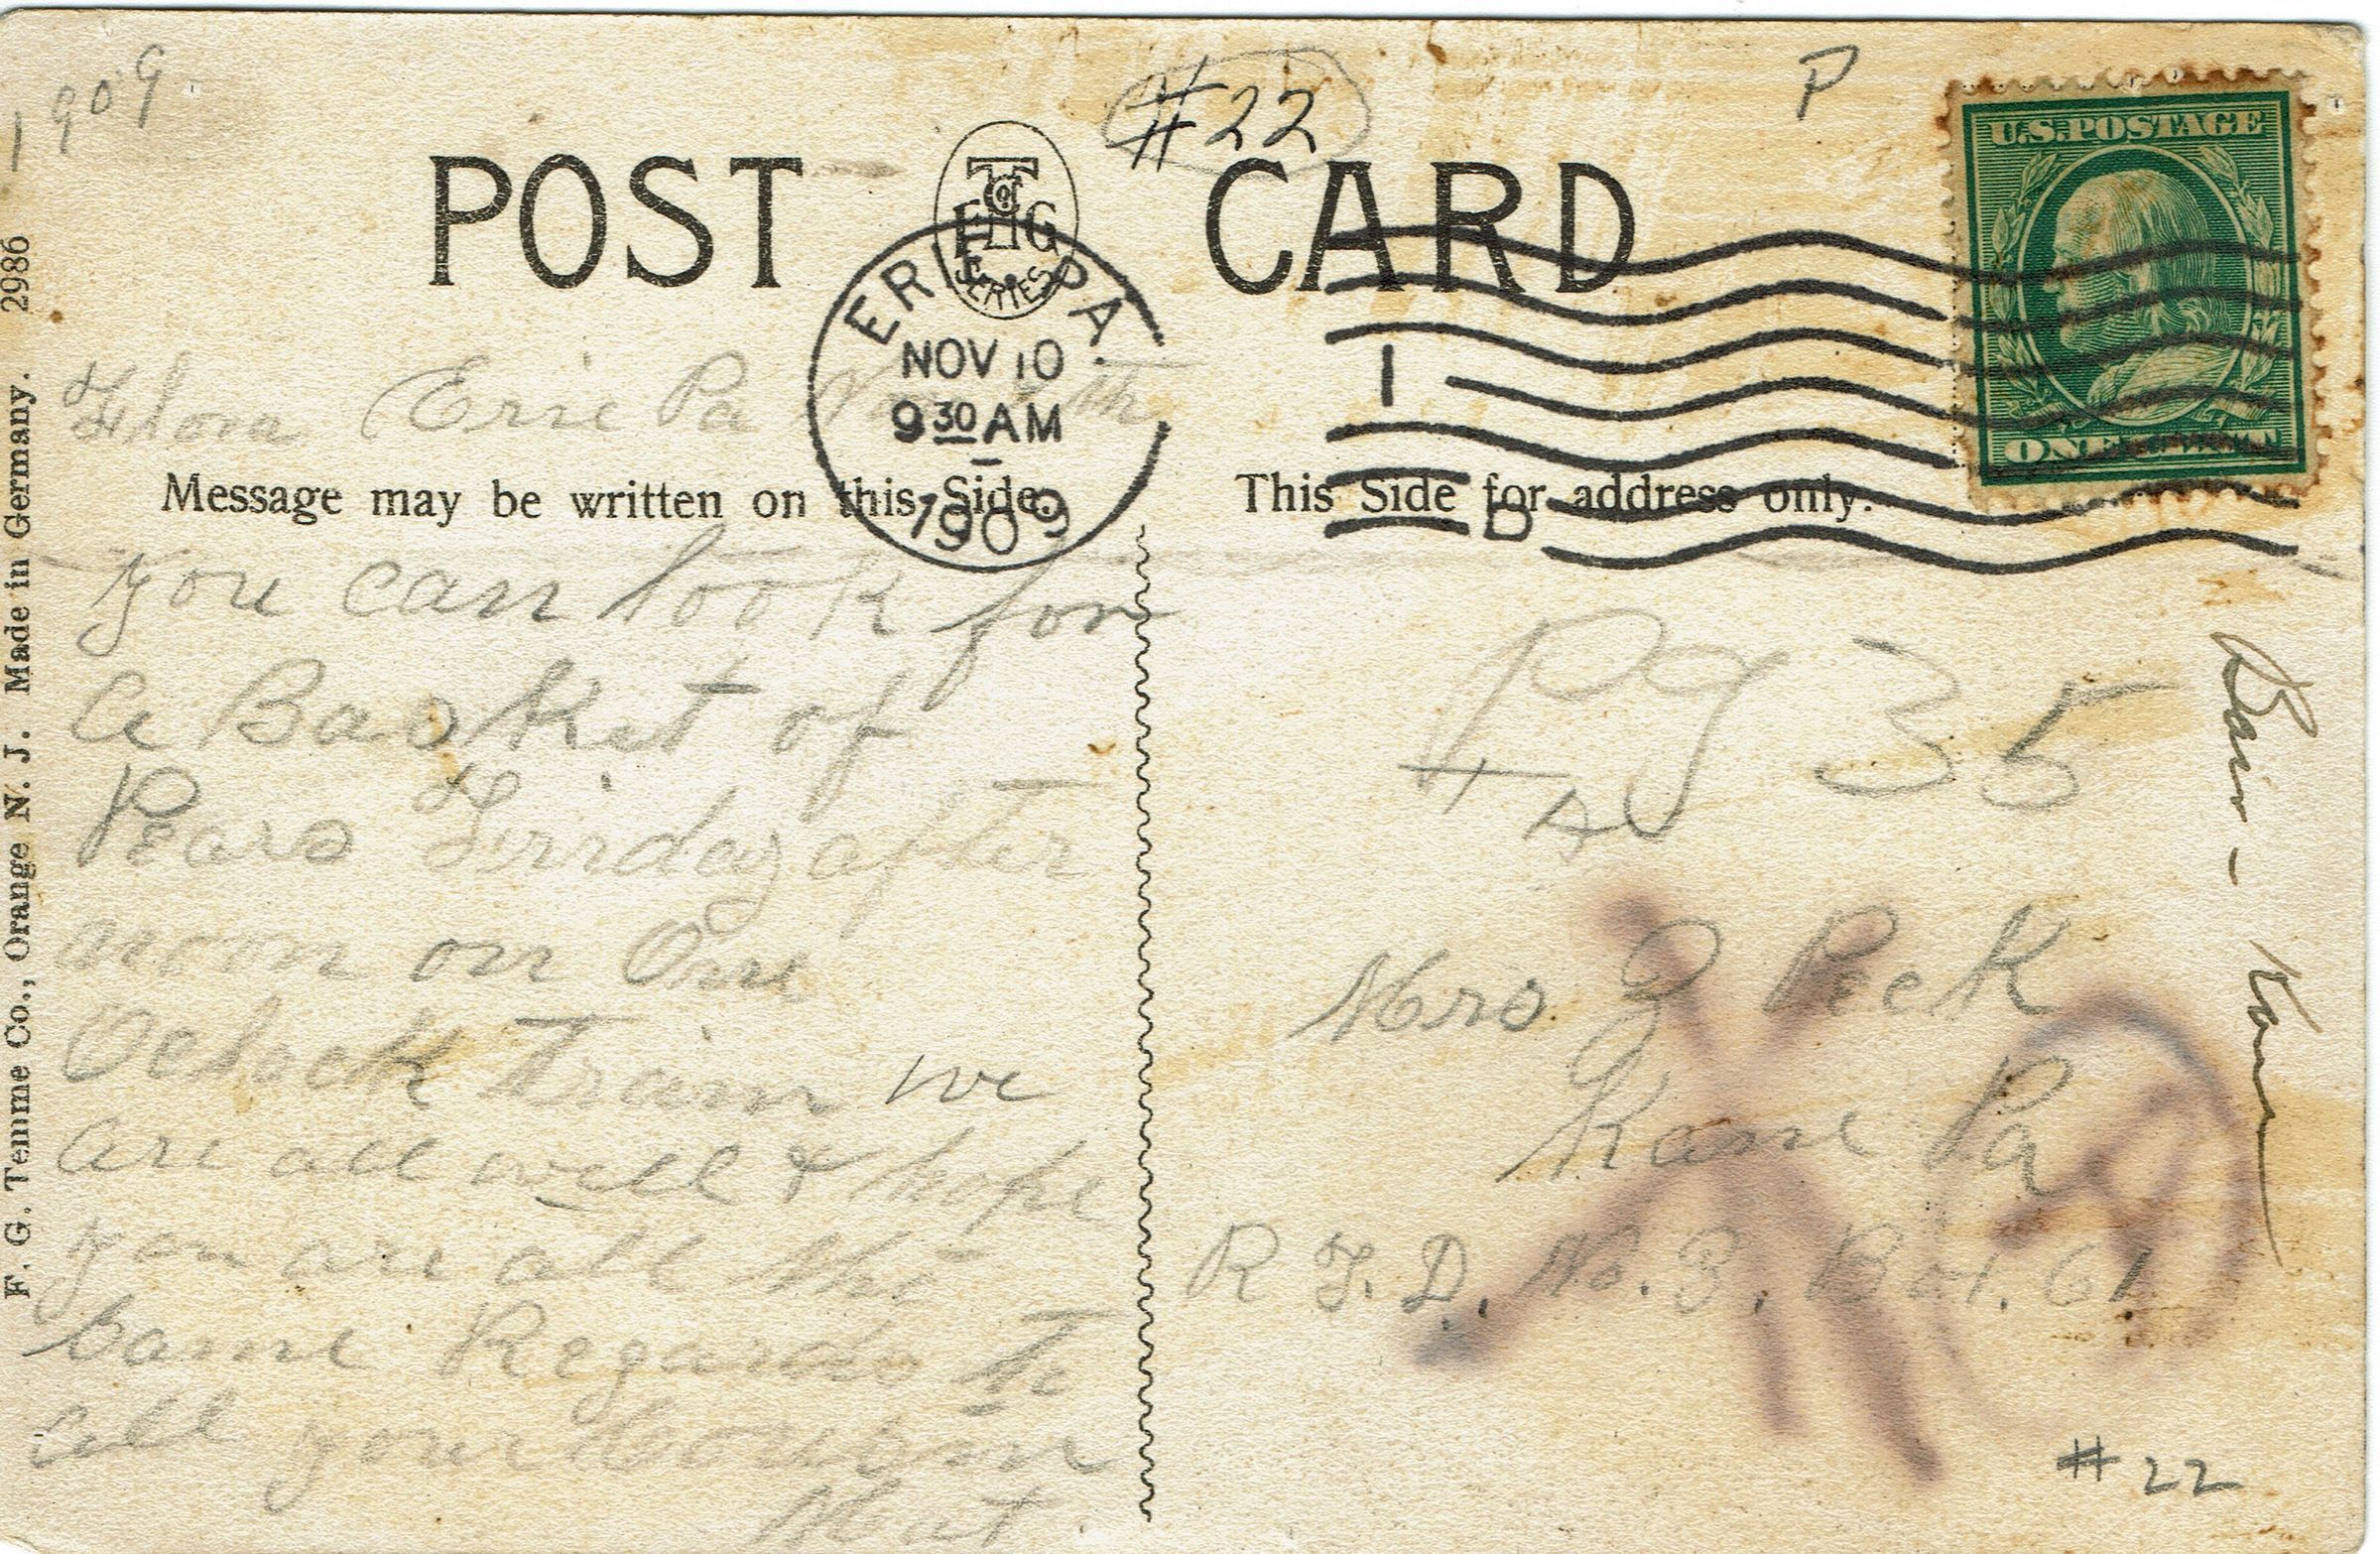 1909
#22
P
POST CARD
T & Co
F G
SERIES
U.S. POSTAGE
ONE
ERIE, PA.
NOV 10
9 30 AM
1909
1
D
Message may be written on this Side.
This Side for address only.
F. G. Temme Co., Orange N. J. Made in Germany. 2986
Flora Erie Pa
you can look for
a Basket of
Pears Firday after
noon on One
Oclock Train we
are all well & hope
you are all the
Same Regards to
all your Cousin
Mat
Pg 35
Mrs J Peck
Kane Pa
R F. D. No. 3. Box. 61
#22